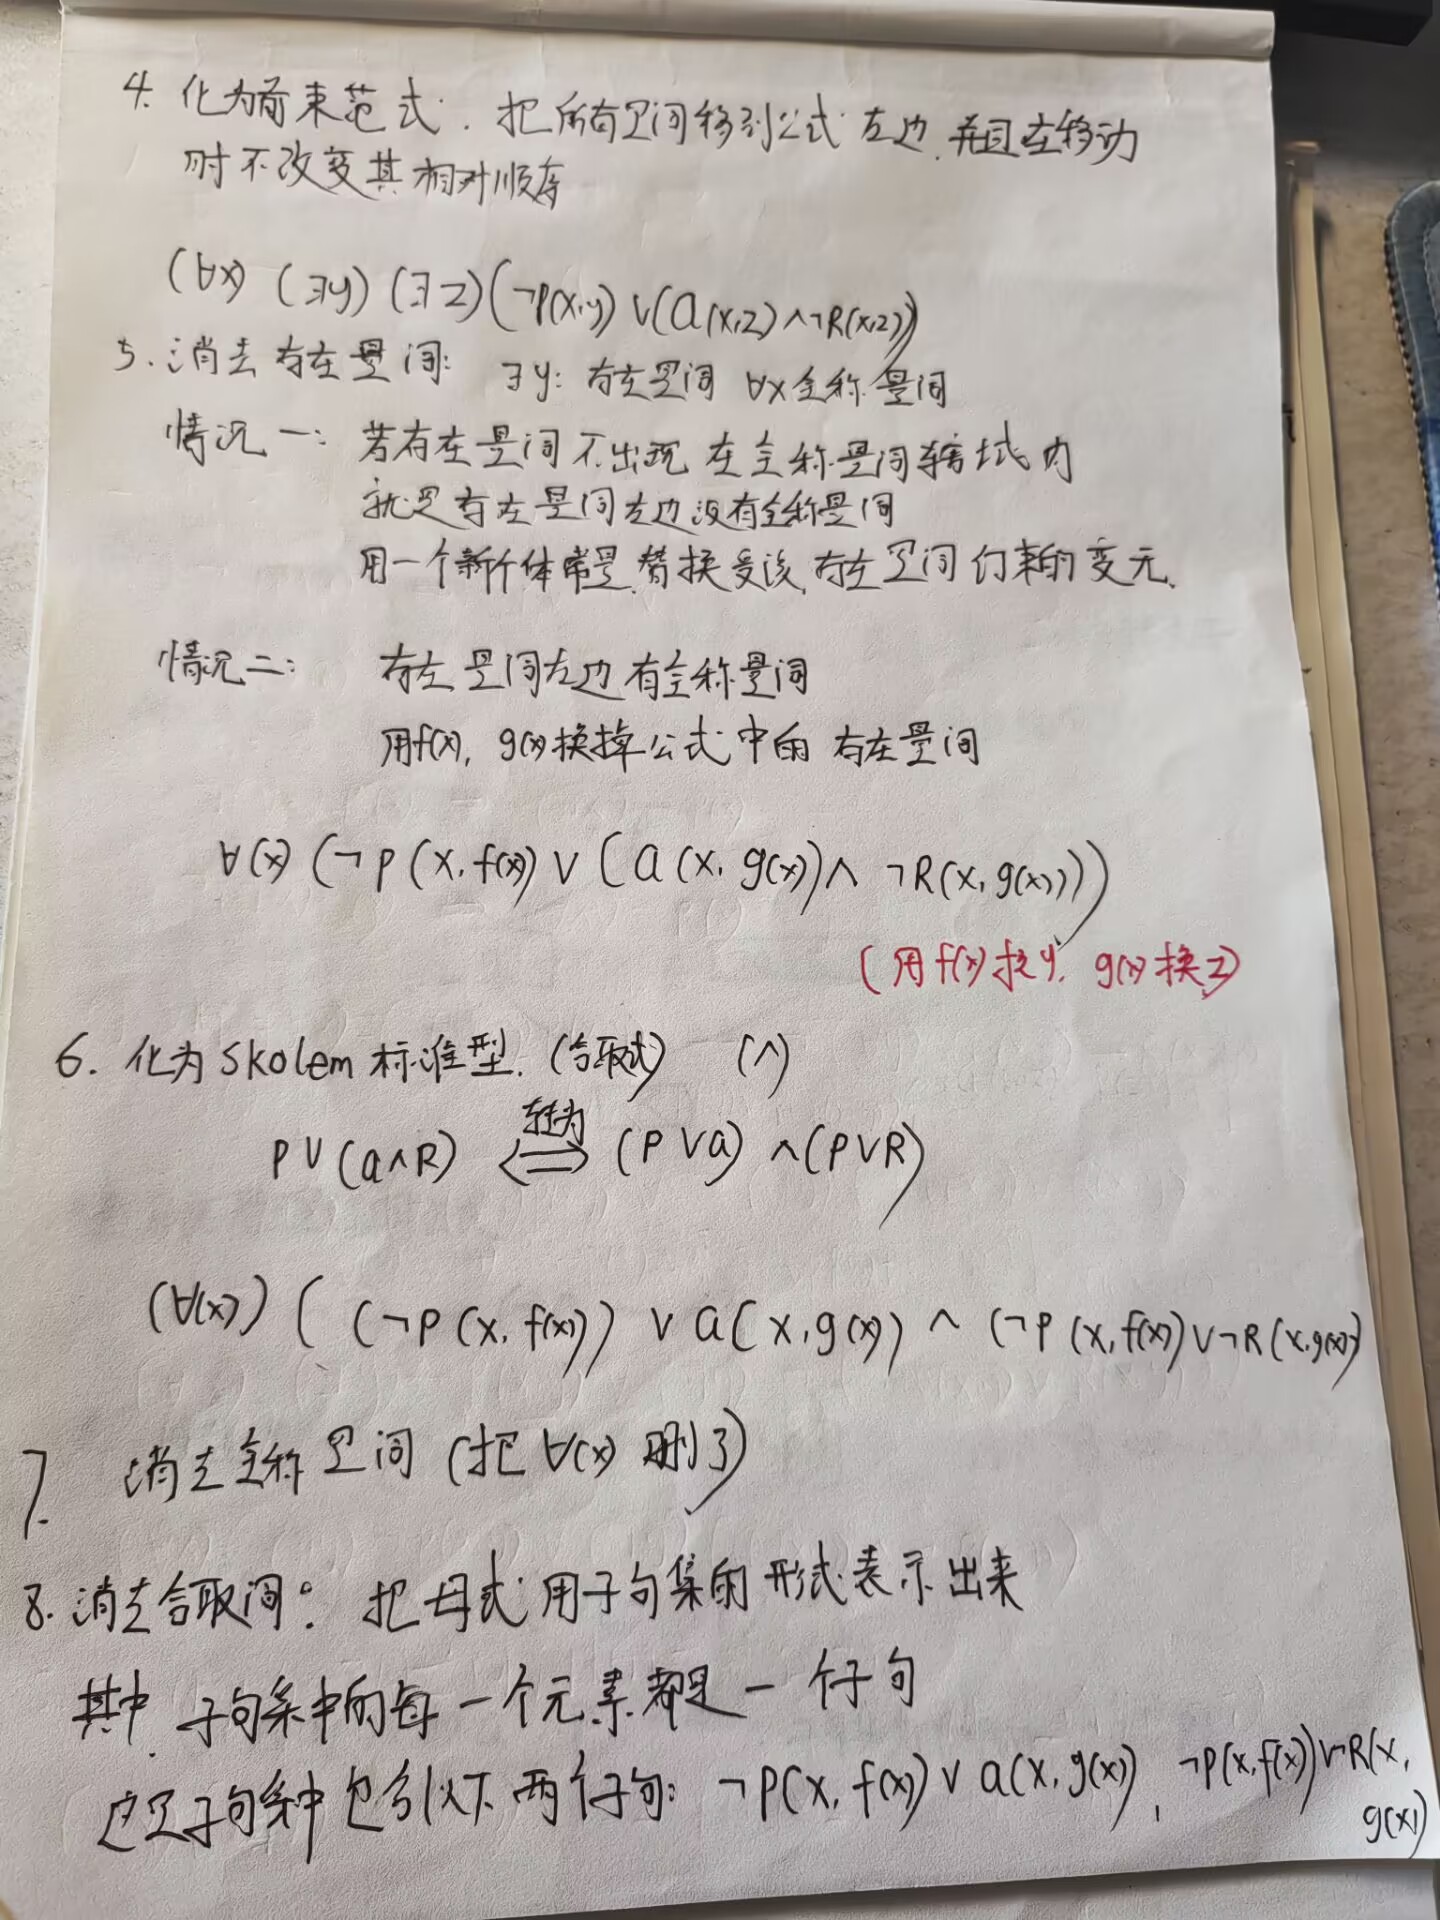 4. 化为前束范式. 把所有量词移到公式左边,并且在移动
时不改变其相对顺序
(∀x) (∃y) (∃z)(¬P(x,y) ∨(Q(x,z) ∧¬R(x,z)))
5. 消去存在量词: ∃y: 存在量词 ∀x全称量词
情况一: 若存在量词不出现在全称量词辖域内
就是存在量词左边没有全称量词
用一个新个体常量替换受该存在量词约束的变元.
情况二: 存在量词左边有全称量词
用f(x), g(x)换掉公式中的存在量词
∀(x) (¬P(x,f(x)) ∨ (Q(x,g(x))∧ ¬R(x,g(x))))
(用f(x)换y, g(x)换z)
6. 化为Skolem标准型. (合取式) (∧)
转为
P∨(Q∧R) ⟺ (P∨Q) ∧(P∨R)
(∀(x)) ( (¬P(x,f(x))) ∨ Q(x,g(x)) ∧ (¬P(x,f(x))∨¬R(x,g(x))
7. 消去全称量词 (把∀(x)删了)
8. 消去合取词: 把母式用子句集的形式表示出来
其中,子句集中的每一个元素都是一个子句
这里子句集中包含以下两个子句: ¬P(x,f(x))∨Q(x,g(x)), ¬P(x,f(x))∨¬R(x,
g(x))